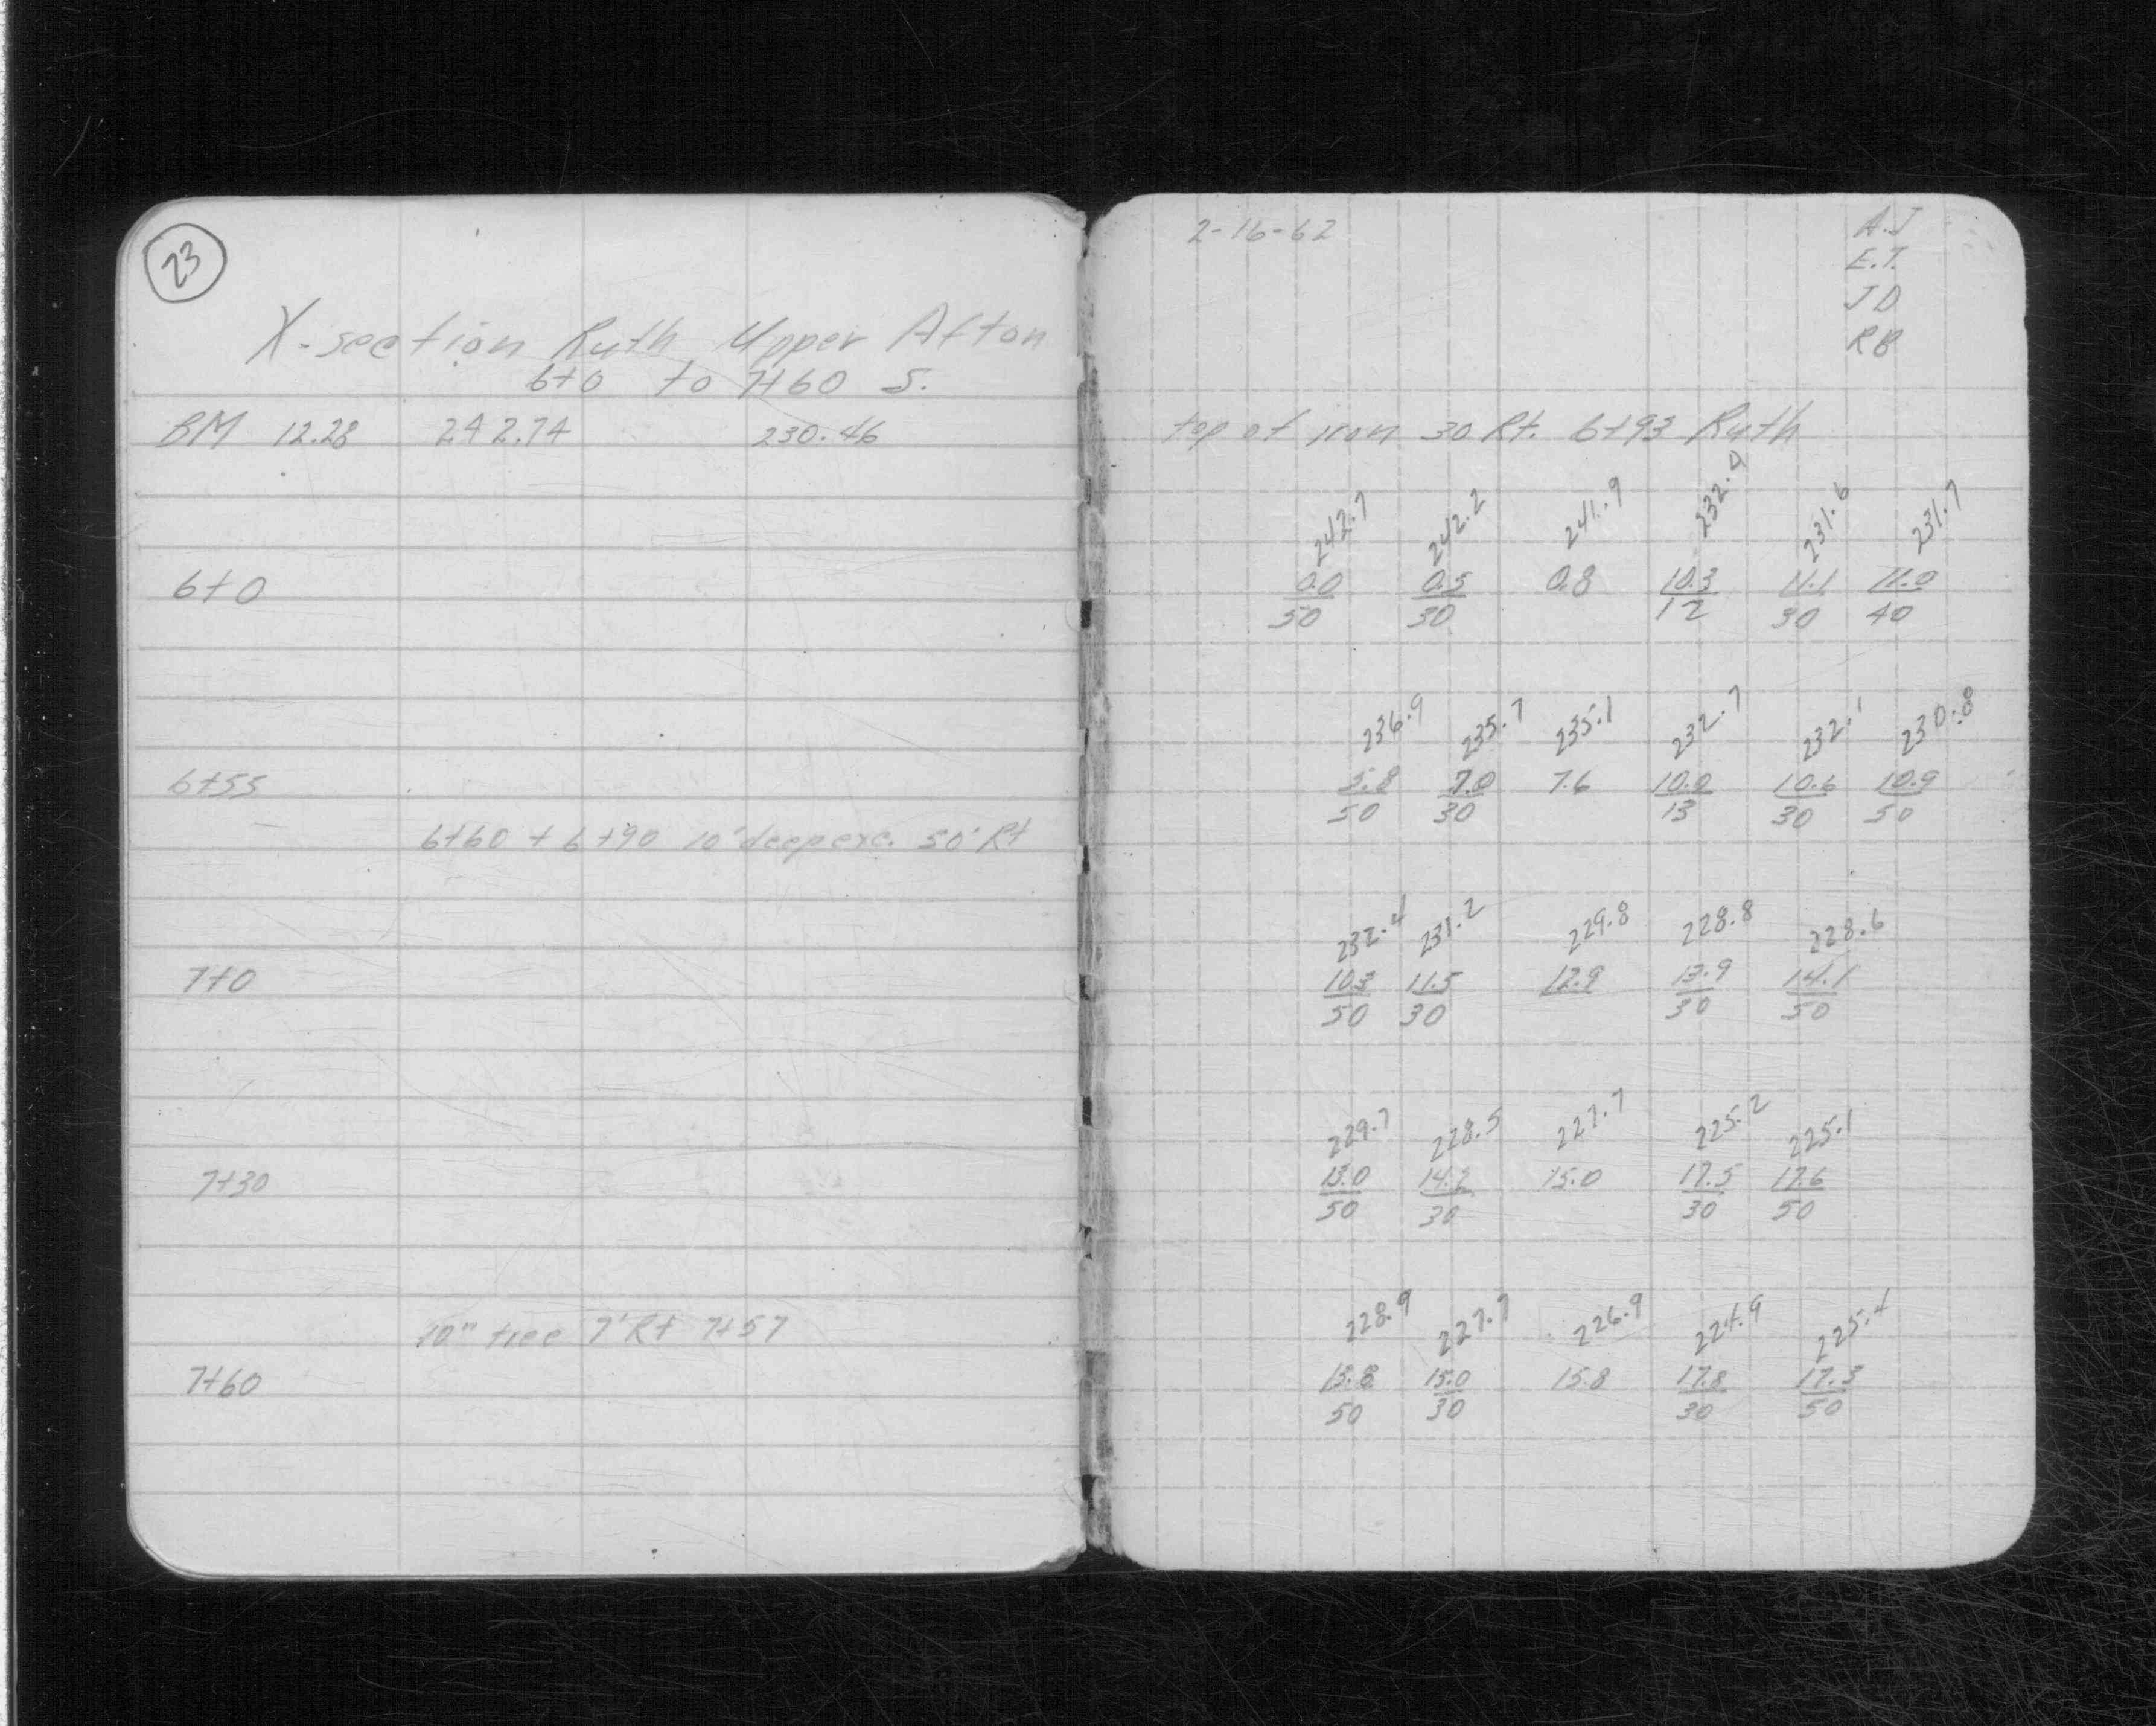 23
X-section Ruth Upper Afton
6+0 to 7+60 S.
BM 12.28 242.74 230.46
6+0
6+55
6+60 + 6+90 10' deep exc. 50' Rt
7+0
7+30
10" tree 7' Rt 7+57
7+60
2-16-62
A.J
E.T.
J D
R B
top of iron 30 Rt. 6+93 Ruth
242.7 242.2 241.9 232.4 231.6 231.7
0.0 0.5 0.8 10.3 11.1 11.0
50 30 12 30 40
236.9 235.7 235.1 232.7 232.1 230.8
5.8 7.0 7.6 10.0 10.6 10.9
50 30 13 30 50
232.4 231.2 229.8 228.8 228.6
10.3 11.5 12.9 13.9 14.1
50 30 30 50
229.7 228.5 227.7 225.2 225.1
13.0 14.2 15.0 17.5 17.6
50 30 30 50
228.9 227.7 226.9 224.9 225.4
13.8 15.0 15.8 17.8 17.3
50 30 30 50